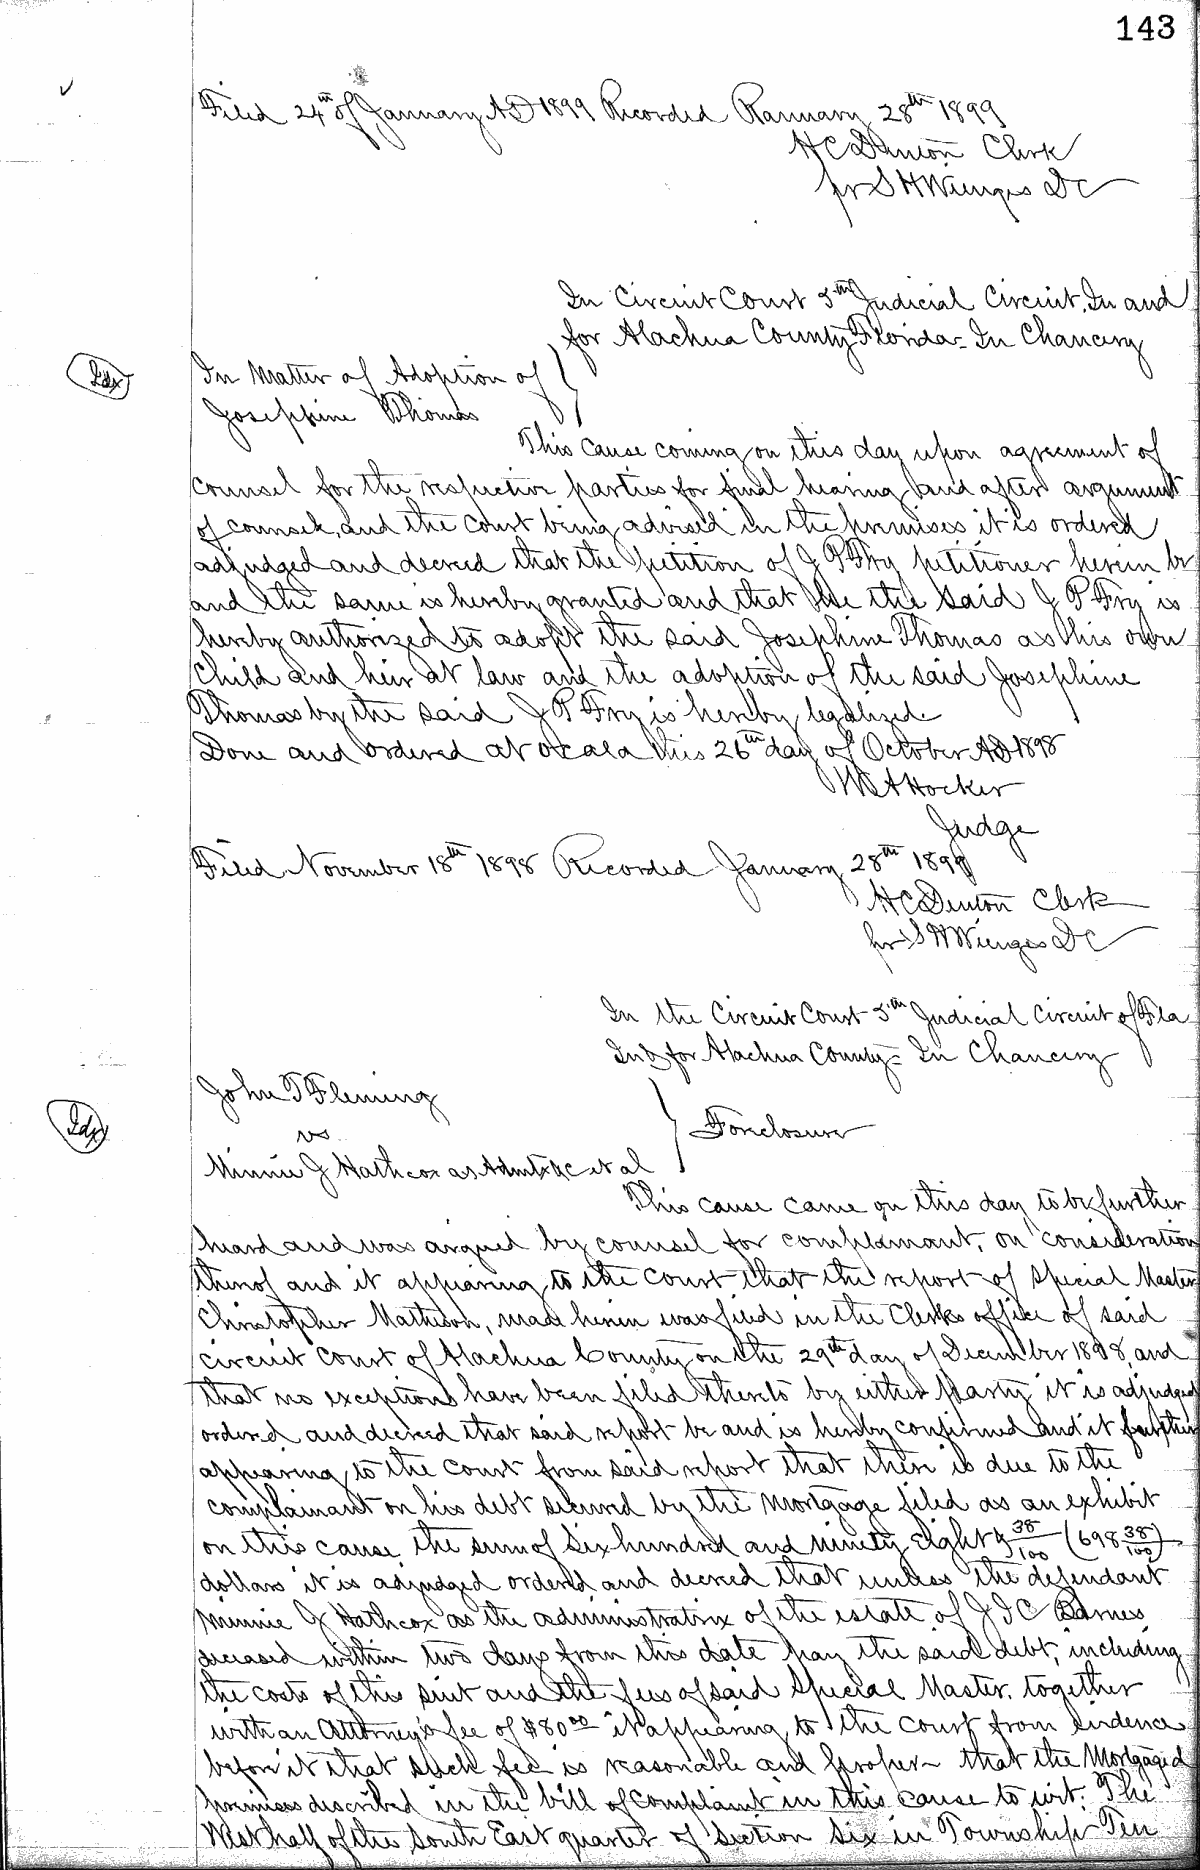 143
Filed 24th of January AD 1899 Recorded January 28th 1899
H C Denton Clerk
pr S H Wienges DC
In Circuit Court 5th Judicial Circuit, In and
for Alachua County Florida - In Chancery
Idx
In Matter of Adoption of
Josephine Thomas
This cause coming on this day upon agreement of
counsel for the respective parties for final hearing and after argument
of counsel, and the court being advised in the premises it is ordered
adjudged and decreed that the petition of J P Fry petitioner herein be
and the same is hereby granted and that he the said J P Fry is
hereby authorized to adopt the said Josephine Thomas as his own
child and heir at law and the adoption of the said Josephine
Thomas by the said J P Fry is hereby legalized.
Done and ordered at Ocala this 26th day of October AD 1898
W A Hocker
Judge
Filed November 18th 1898 Recorded January 28th 1899
H C Denton Clerk
pr S H Wienges DC
In the Circuit Court 5th Judicial Circuit of Fla
In & for Alachua County - In Chancery
Idx
John T Fleming
vs
Minnie J Hathcox as Admtrx &c et al
} Foreclosure
This cause came on this day to be further
heard and was argued by counsel for complainant, on consideration
thereof and it appearing to the court that the report of Special Master
Christopher Matheson, made herein was filed in the Clerks office of said
circuit court of Alachua County on the 29th day of December 1898, and
that no exceptions have been filed thereto by either party it is adjudged
ordered and decreed that said report be and is hereby confirmed and it further
appearing to the court from said report that there is due to the
complainant on his debt secured by the mortgage filed as an exhibit
on this cause the sum of Six hundred and ninety eight & 38/100 (698 38/100)
dollars it is adjudged ordered and decreed that unless the defendant
Minnie J Hathcox as the administratrix of the estate of J I C Barnes
deceased within two days from this date pay the said debt, including
the costs of this suit and the fees of said Special Master, together
with an Attorney's fee of $80 00 it appearing to the court from evidence
before it that such fee is reasonable and proper - that the Mortgaged
premises described in the bill of complaint in this cause to wit: The
West half of the South East quarter of Section Six in Township Ten